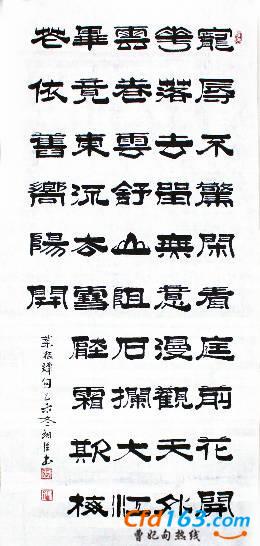 寵辱不驚閑看庭前花開
花落去留無意漫觀天外
雲卷雲舒山阻石攔大江
畢竟東流去雪壓霜欺梅
花依舊嚮陽開
句乙未冬書
Cfd163.com
曹妃甸热线